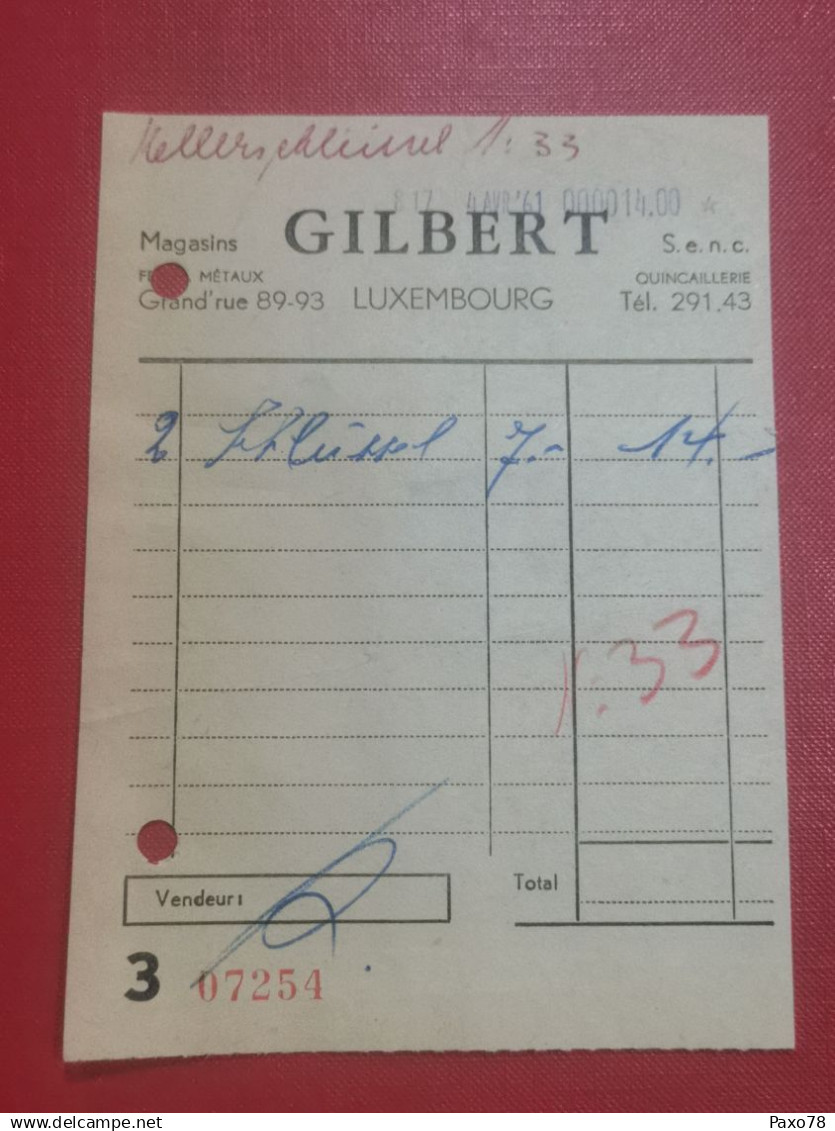 Kellerschlüssel 1:33
817 4 AVR '61 000014.00 *
Magasins GILBERT S.e.n.c.
MÉTAUX QUINCAILLERIE
Grand'rue 89-93 LUXEMBOURG Tél. 291.43
2 Schlüssel 7.- 14.-
1:33
Total
Vendeur:
3 07254
www.delcampe.net
Paxo78